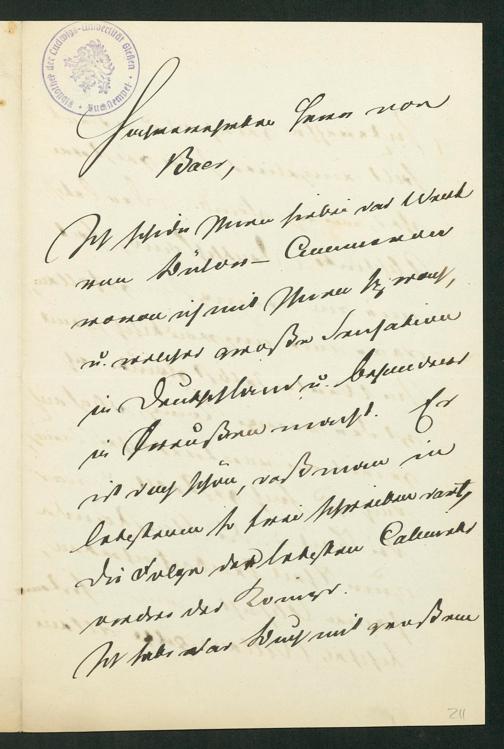 Bibliothek der Ludwigs-Universität Gießen
Hochverehrter Herr von
Baer,
Ich schicke Ihnen hierbei das Werk
von Bülow-Cummerow
wovon ich mit Ihnen sprach,
u. welches große Sensation
in Deutschland u. besonders
in Preußen macht. Er
ist doch schön, daß man in
letzterem so frei schreiben darf,
die Folge des letzten Cabinets
ordres des Königs.
Ich habe das Buch mit großem
211